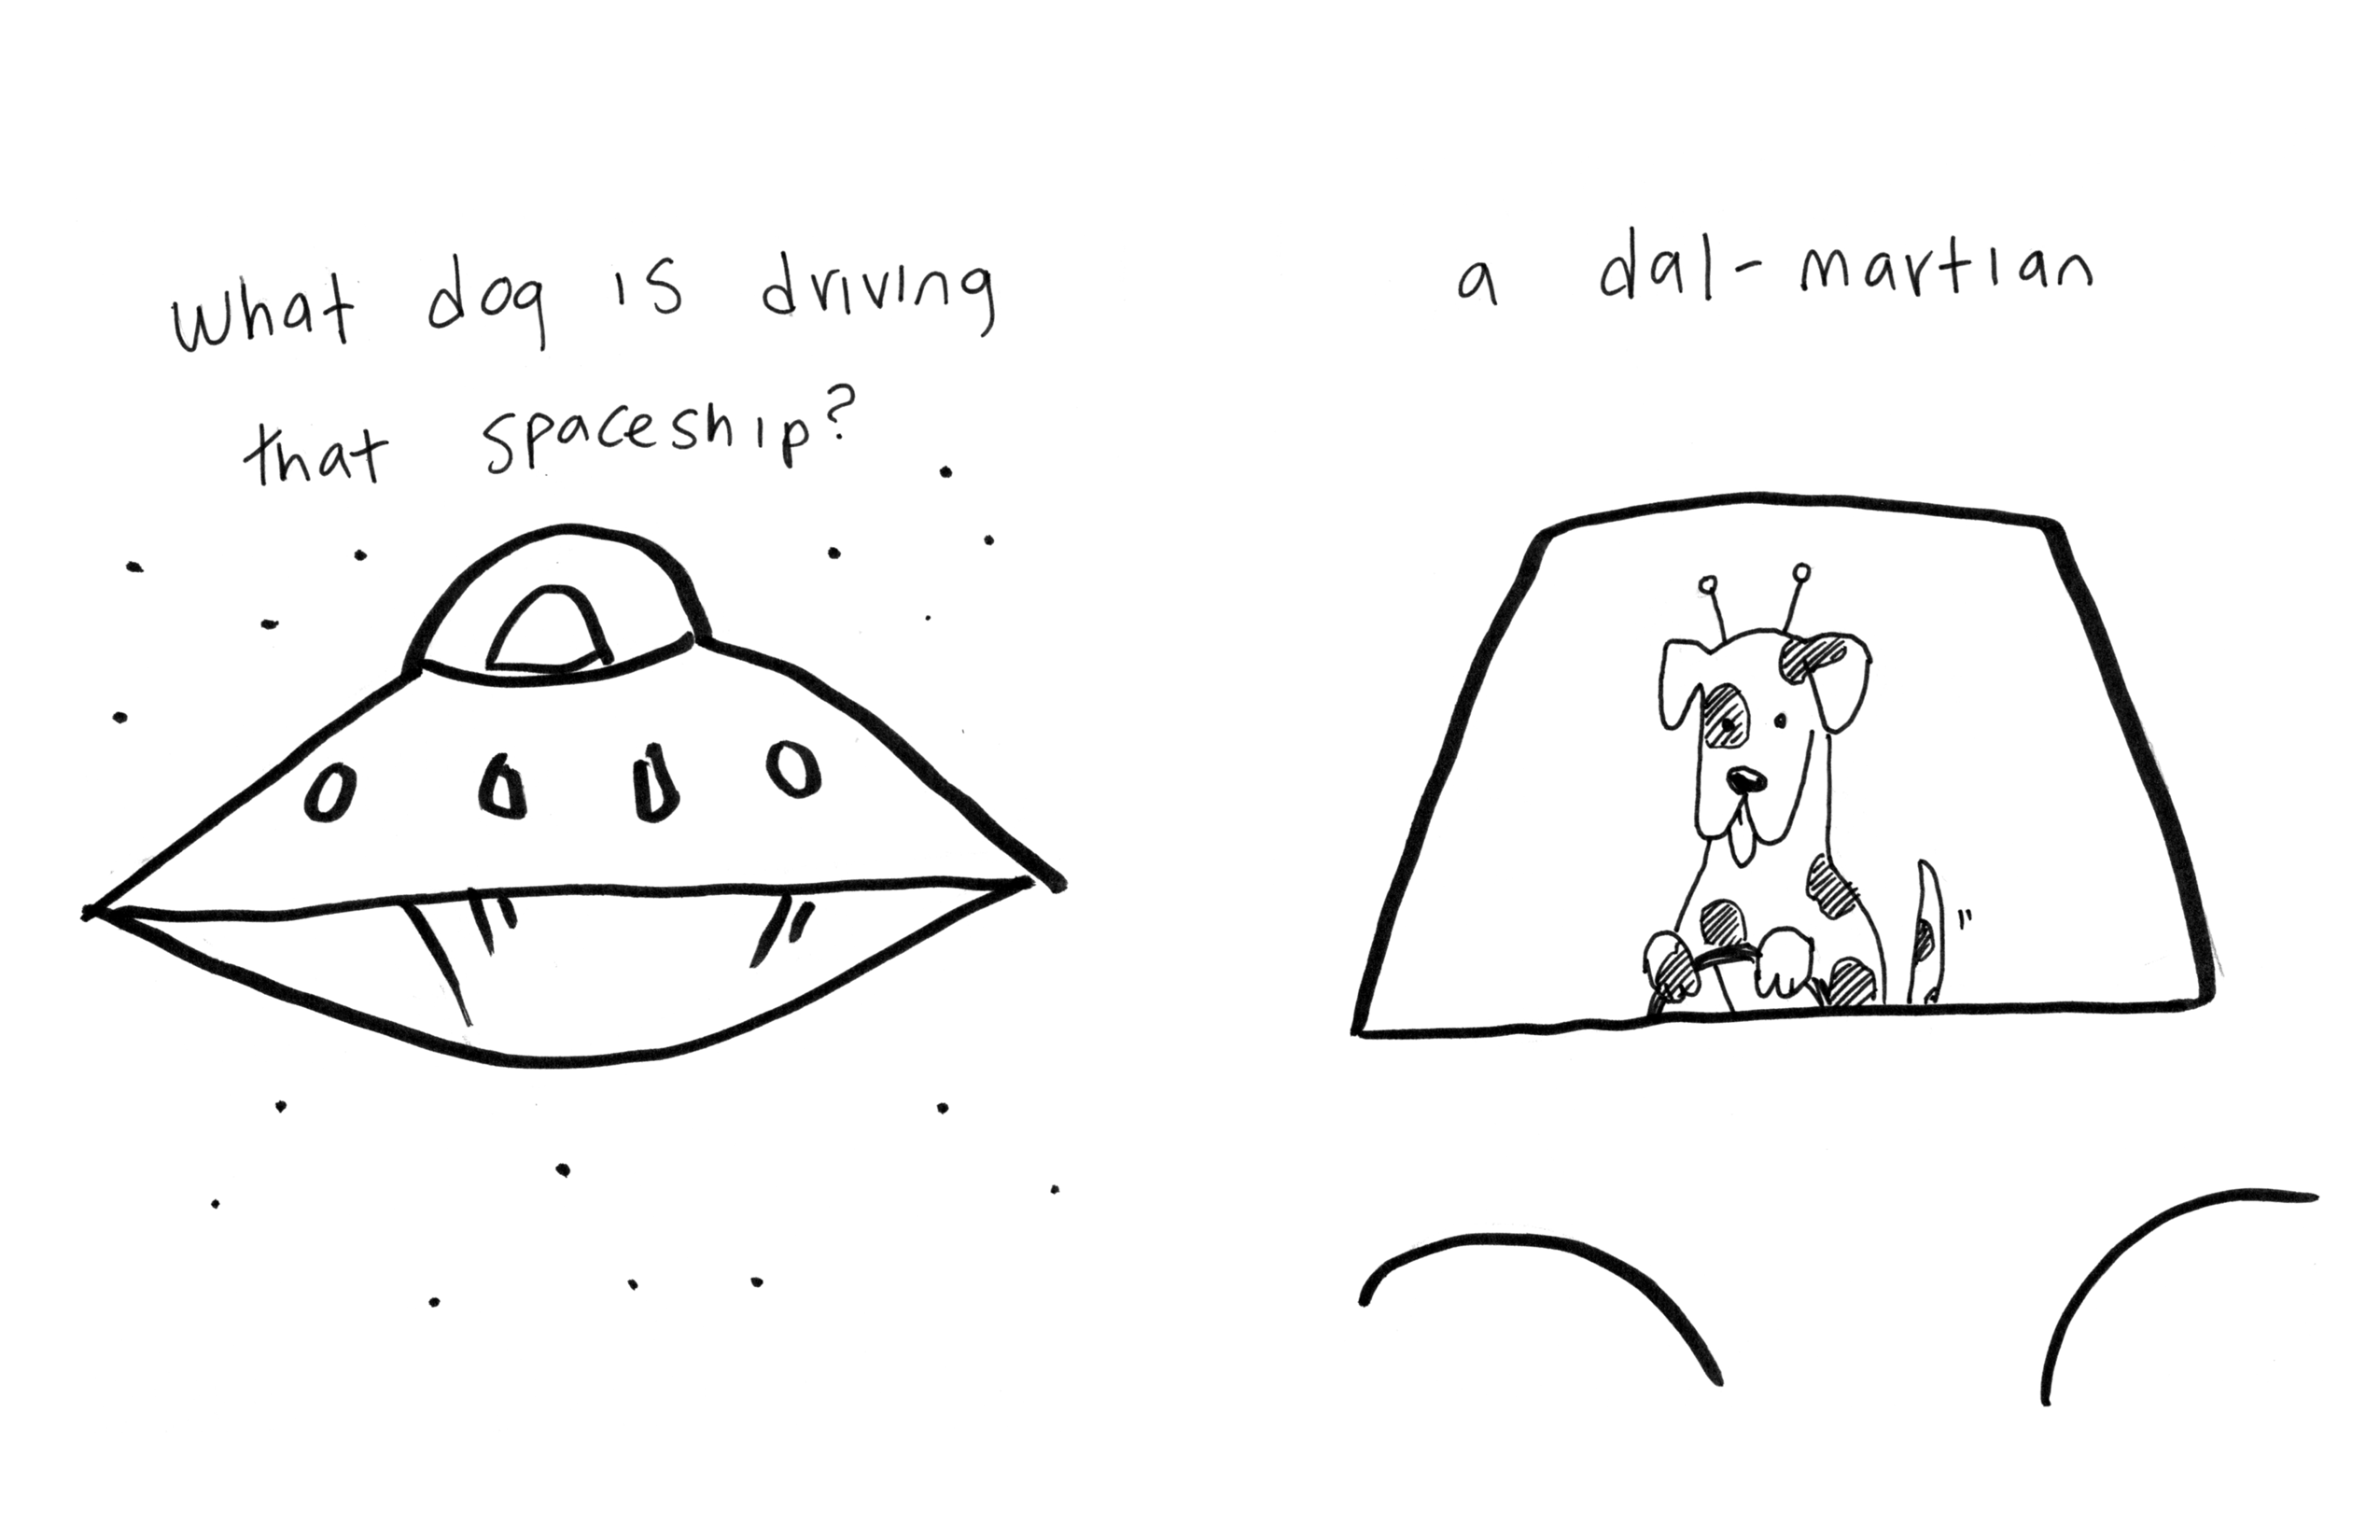 What dog is driving
that spaceship?
a dal-martian